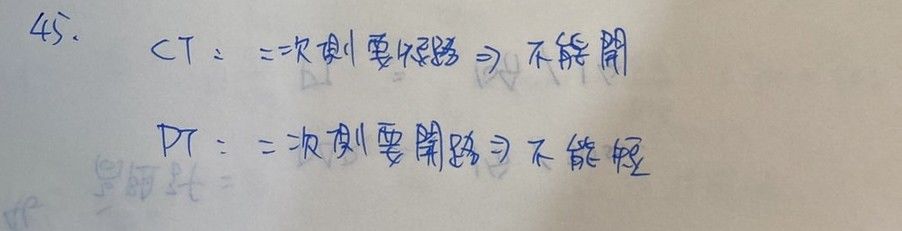 45.
CT：二次側要短路⇒不能開
PT：二次側要開路⇒不能短